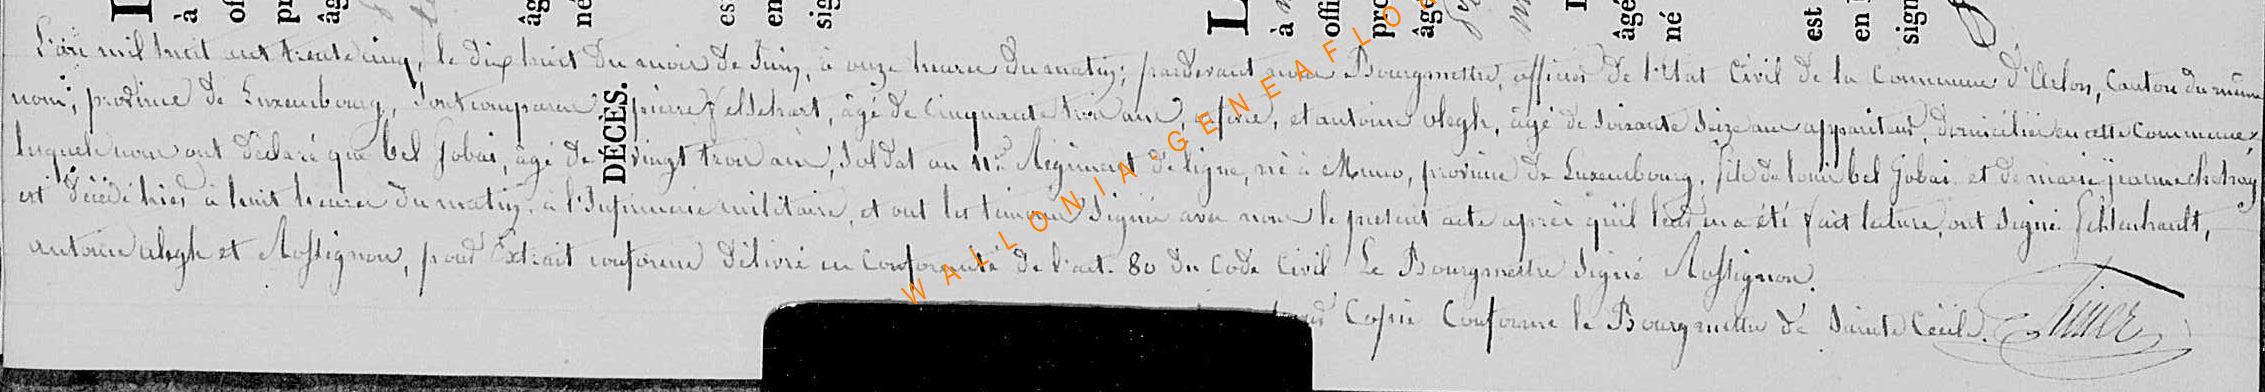 L'an mil huit cent trente cinq, le dix huit du mois de Juin, à onze heures du matin; pardevant nous Bourgmestre, officier de l'Etat Civil de la Commune d'Arlon, Canton du même
nom, province de Luxembourg, sont comparus pierre fellenhart, âgé de cinquante trois ans, et antoine alegh, âgé de soixante seize ans appariteur, domiciliés en cette Commune,
lesquels nous ont déclaré que bel Gobai, âgé de vingt trois ans, soldat au 11e Régiment de ligne, né à Muno, province de Luxembourg, fils de louis bel Gobai et de marie jeanne
est décédé hier à huit heures du matin, à l'Infirmerie militaire, et ont les témoins signé avec nous le présent acte après qu'il leur en a été fait lecture, ont signé fehlenhault,
antoine alegh et Rossignon, pour Extrait conforme délivré en Conformité de l'art. 80 du Code Civil Le Bourgmestre signé Rossignon.
pour Copie Conforme le Bourgmestre de Sainte Cécile.
DÉCÈS.
WALLONIA-GENEAFLO